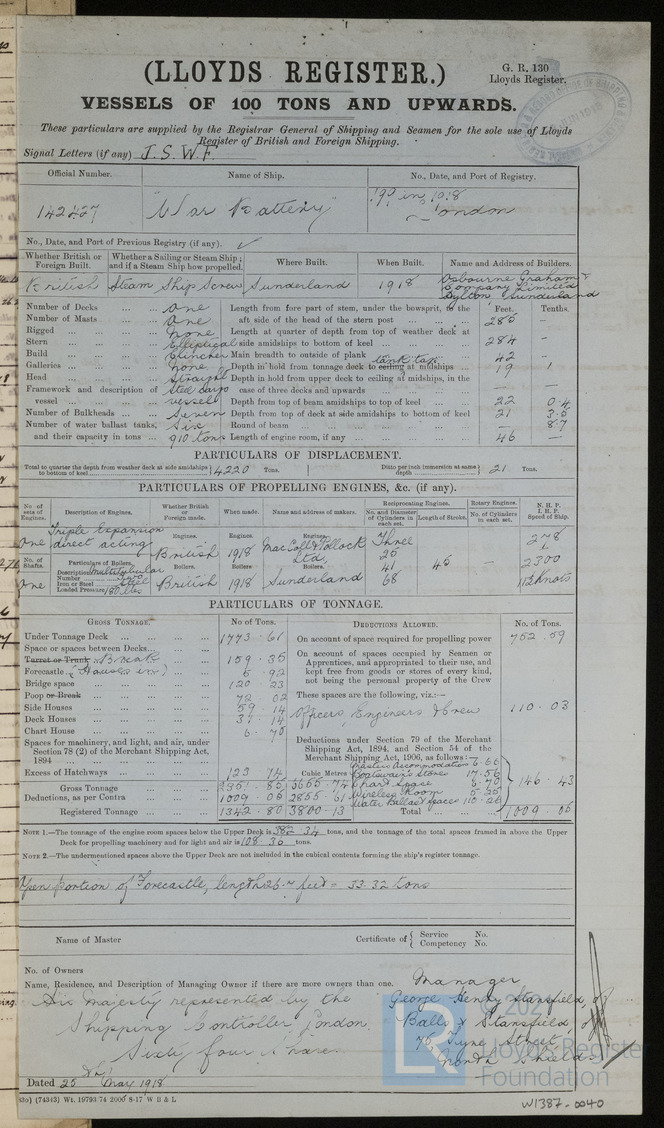 (LLOYDS REGISTER.)
G. R. 130
Lloyds Register.
VESSELS OF 100 TONS AND UPWARDS.
These particulars are supplied by the Registrar General of Shipping and Seamen for the sole use of Lloyds
Register of British and Foreign Shipping.
Signal Letters (if any) J.S.W.F.
Official Number. Name of Ship. No., Date, and Port of Registry.
142427 "War Battery" in 1918
London
No., Date, and Port of Previous Registry (if any).
Whether British or Foreign Built. Whether a Sailing or Steam Ship; and if a Steam Ship how propelled. Where Built. When Built. Name and Address of Builders.
British Steam Ship Screw Sunderland 1918 Osbourne Graham &
Company Limited
Hylton, Sunderland
Number of Decks One Length from fore part of stem, under the bowsprit, to the Feet. Tenths.
Number of Masts One aft side of the head of the stern post 285 -
Rigged None Length at quarter of depth from top of weather deck at
Stern Elliptical side amidships to bottom of keel 284 -
Build Clincher Main breadth to outside of plank 42 -
Galleries None Depth in hold from tonnage deck to ceiling at midships tank top 19 1
Head Straight Depth in hold from upper deck to ceiling at midships, in the
Framework and description of Steel cargo case of three decks and upwards - -
vessel vessel Depth from top of beam amidships to top of keel 22 04
Number of Bulkheads Seven Depth from top of deck at side amidships to bottom of keel 21 35
Number of water ballast tanks, Six Round of beam - 87
and their capacity in tons 910 tons Length of engine room, if any 46 -
PARTICULARS OF DISPLACEMENT.
Total to quarter the depth from weather deck at side amidships to bottom of keel 4220 Tons. Ditto per inch immersion at same depth 21 Tons.
PARTICULARS OF PROPELLING ENGINES, &c. (if any).
No. of sets of Engines. Description of Engines. Whether British or Foreign made. When made. Name and address of makers. Reciprocating Engines. Rotary Engines. N. H. P.
No. and Diameter of Cylinders in each set. Length of Stroke. No. of Cylinders in each set. I. H. P. Speed of Ship.
One Triple Expansion direct acting Engines. British Engines. 1918 Engines. MacColl & Pollock Ltd, Three 25 278
No. of Shafts. Particulars of Boilers. Boilers. Boilers. Boilers. 41 45 - 2300
Description Multitubular
Number Two
Iron or Steel Steel
Loaded Pressure 180 lbs
One British 1918 Sunderland 68 knots
PARTICULARS OF TONNAGE.
GROSS TONNAGE. No. of Tons. DEDUCTIONS ALLOWED. No. of Tons.
Under Tonnage Deck 1773.61 On account of space required for propelling power 752.59
Space or spaces between Decks On account of spaces occupied by Seamen or
Turret or Trunk Break 159.35 Apprentices, and appropriated to their use, and
Forecastle (Houses in) 6.92 kept free from goods or stores of every kind,
Bridge space 120.23 not being the personal property of the Crew
Poop or Break 72.02 These spaces are the following, viz.:—
Side Houses 59.14
Deck Houses 37.14 Officers, Engineers & Crew 110.03
Chart House 6.70
Spaces for machinery, and light, and air, under Deductions under Section 79 of the Merchant
Section 78 (2) of the Merchant Shipping Act, Shipping Act, 1894, and Section 54 of the
1894 Merchant Shipping Act, 1906, as follows:—
Masters Accommodation 6.66
Excess of Hatchways 123.74 Cubic Metres Boatswain's Stores 17.56
Gross Tonnage 2351.85 6655.74 Chart Space 6.70 146.43
Deductions, as per Contra 1009.05 2855.61 Wireless Room 5.25
Water Ballast spaces 110.26
Registered Tonnage 1342.80 3800.13 Total 1009.05
NOTE 1.—The tonnage of the engine room spaces below the Upper Deck is 382.34 tons, and the tonnage of the total spaces framed in above the Upper
Deck for propelling machinery and for light and air is 108.36 tons.
NOTE 2.—The undermentioned spaces above the Upper Deck are not included in the cubical contents forming the ship's register tonnage.
Open portion of Forecastle, length 26.7 feet = 33.32 tons
Name of Master Certificate of { Service No.
Competency No.
No. of Owners
Name, Residence, and Description of Managing Owner if there are more owners than one. Manager
His Majesty represented by the George Henry Stansfield, of
Shipping Controller, London. Balls & Stansfield, of
Sixty four Shares 76, Tyne Street
North Shields.
Dated 25 May 1918
(74343) Wt. 19793/74 2000 8-17 W B & L
LR
Lloyd's Register
Foundation
W1387-0040